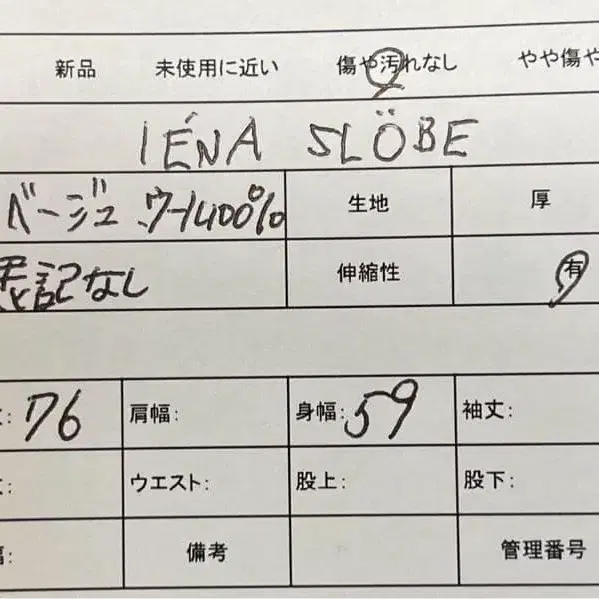 新品 未使用に近い 傷や汚れなし やや傷や
IÉNA SLÖBE
ベージュ ウール100% 生地 厚
表記なし 伸縮性 有
: 76 肩幅: 身幅: 59 袖丈:
: ウエスト: 股上: 股下:
幅: 備考 管理番号